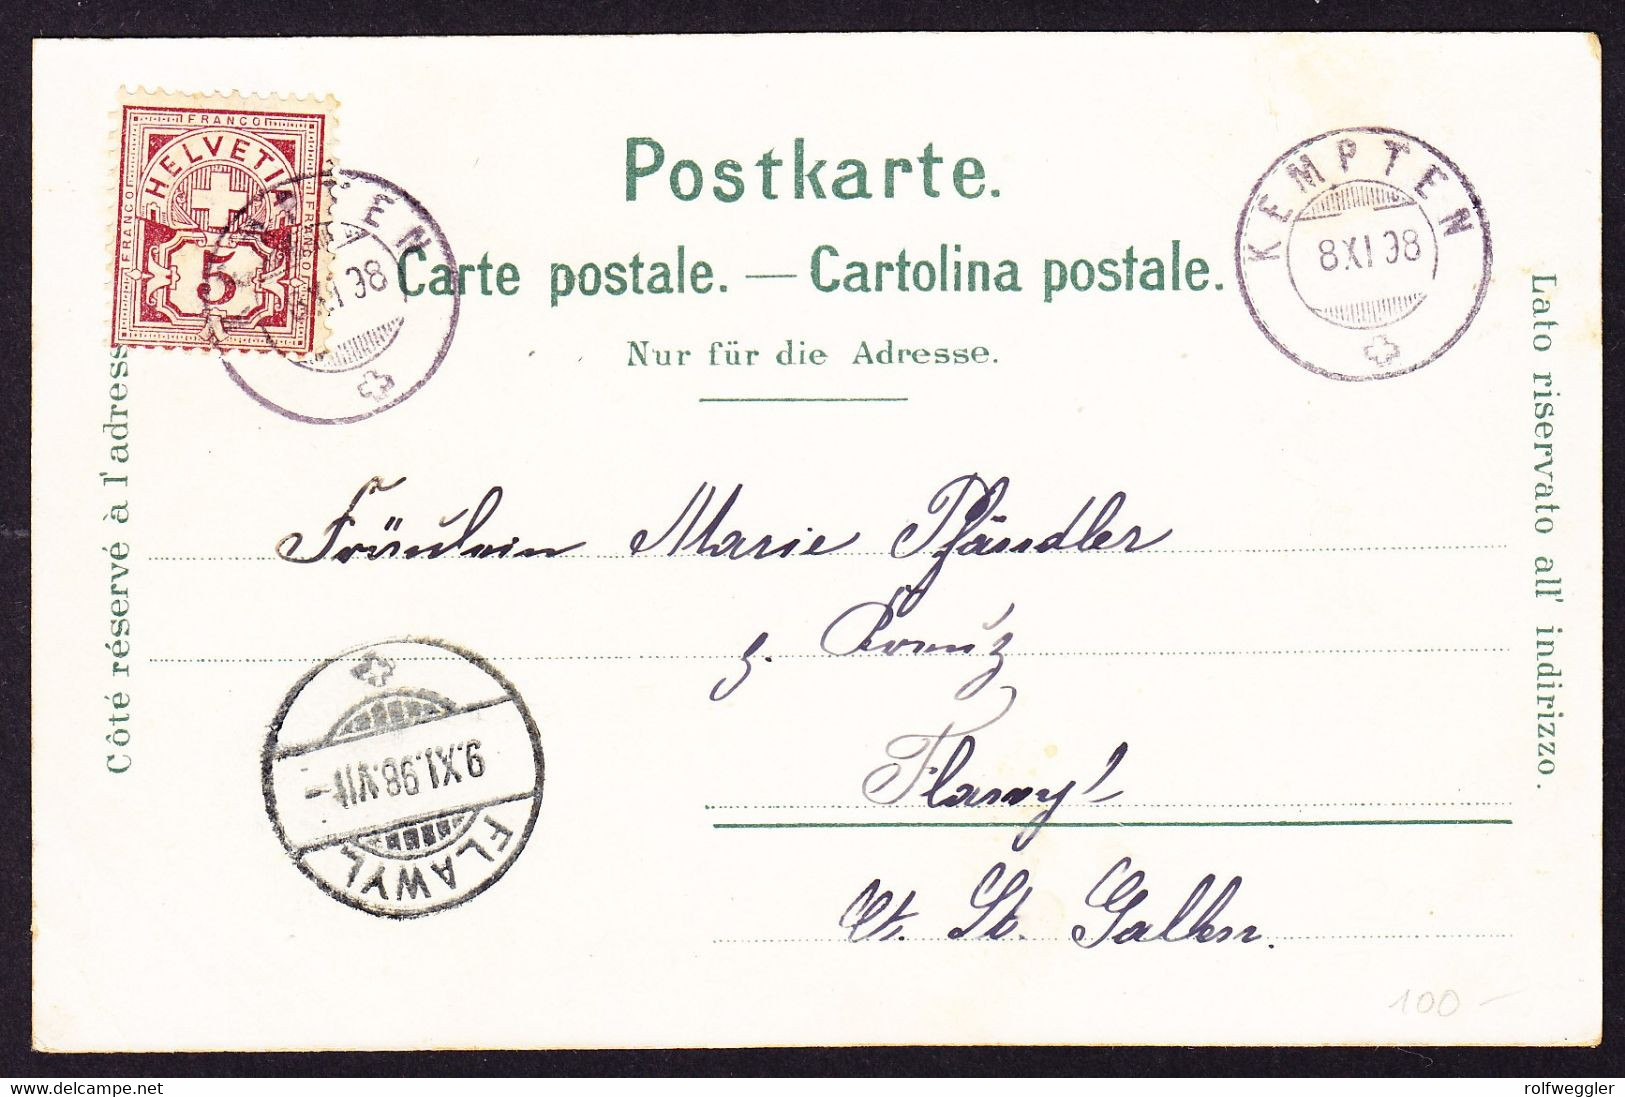 FRANCO
HELVETIA
FRANCO
FRANCO
5
KEMPTEN
8 XI 98
Postkarte.
Carte postale. — Cartolina postale.
Nur für die Adresse.
KEMPTEN
8 XI 98
Côté réservé à l'adresse
Lato riservato all' indirizzo.
Fräulein Marie Pfändler
z. Kreuz
Flawyl
Ct. St. Gallen.
9.XI.98.VII-
FLAWYL
100 –
delcampe.net
rolfweggler